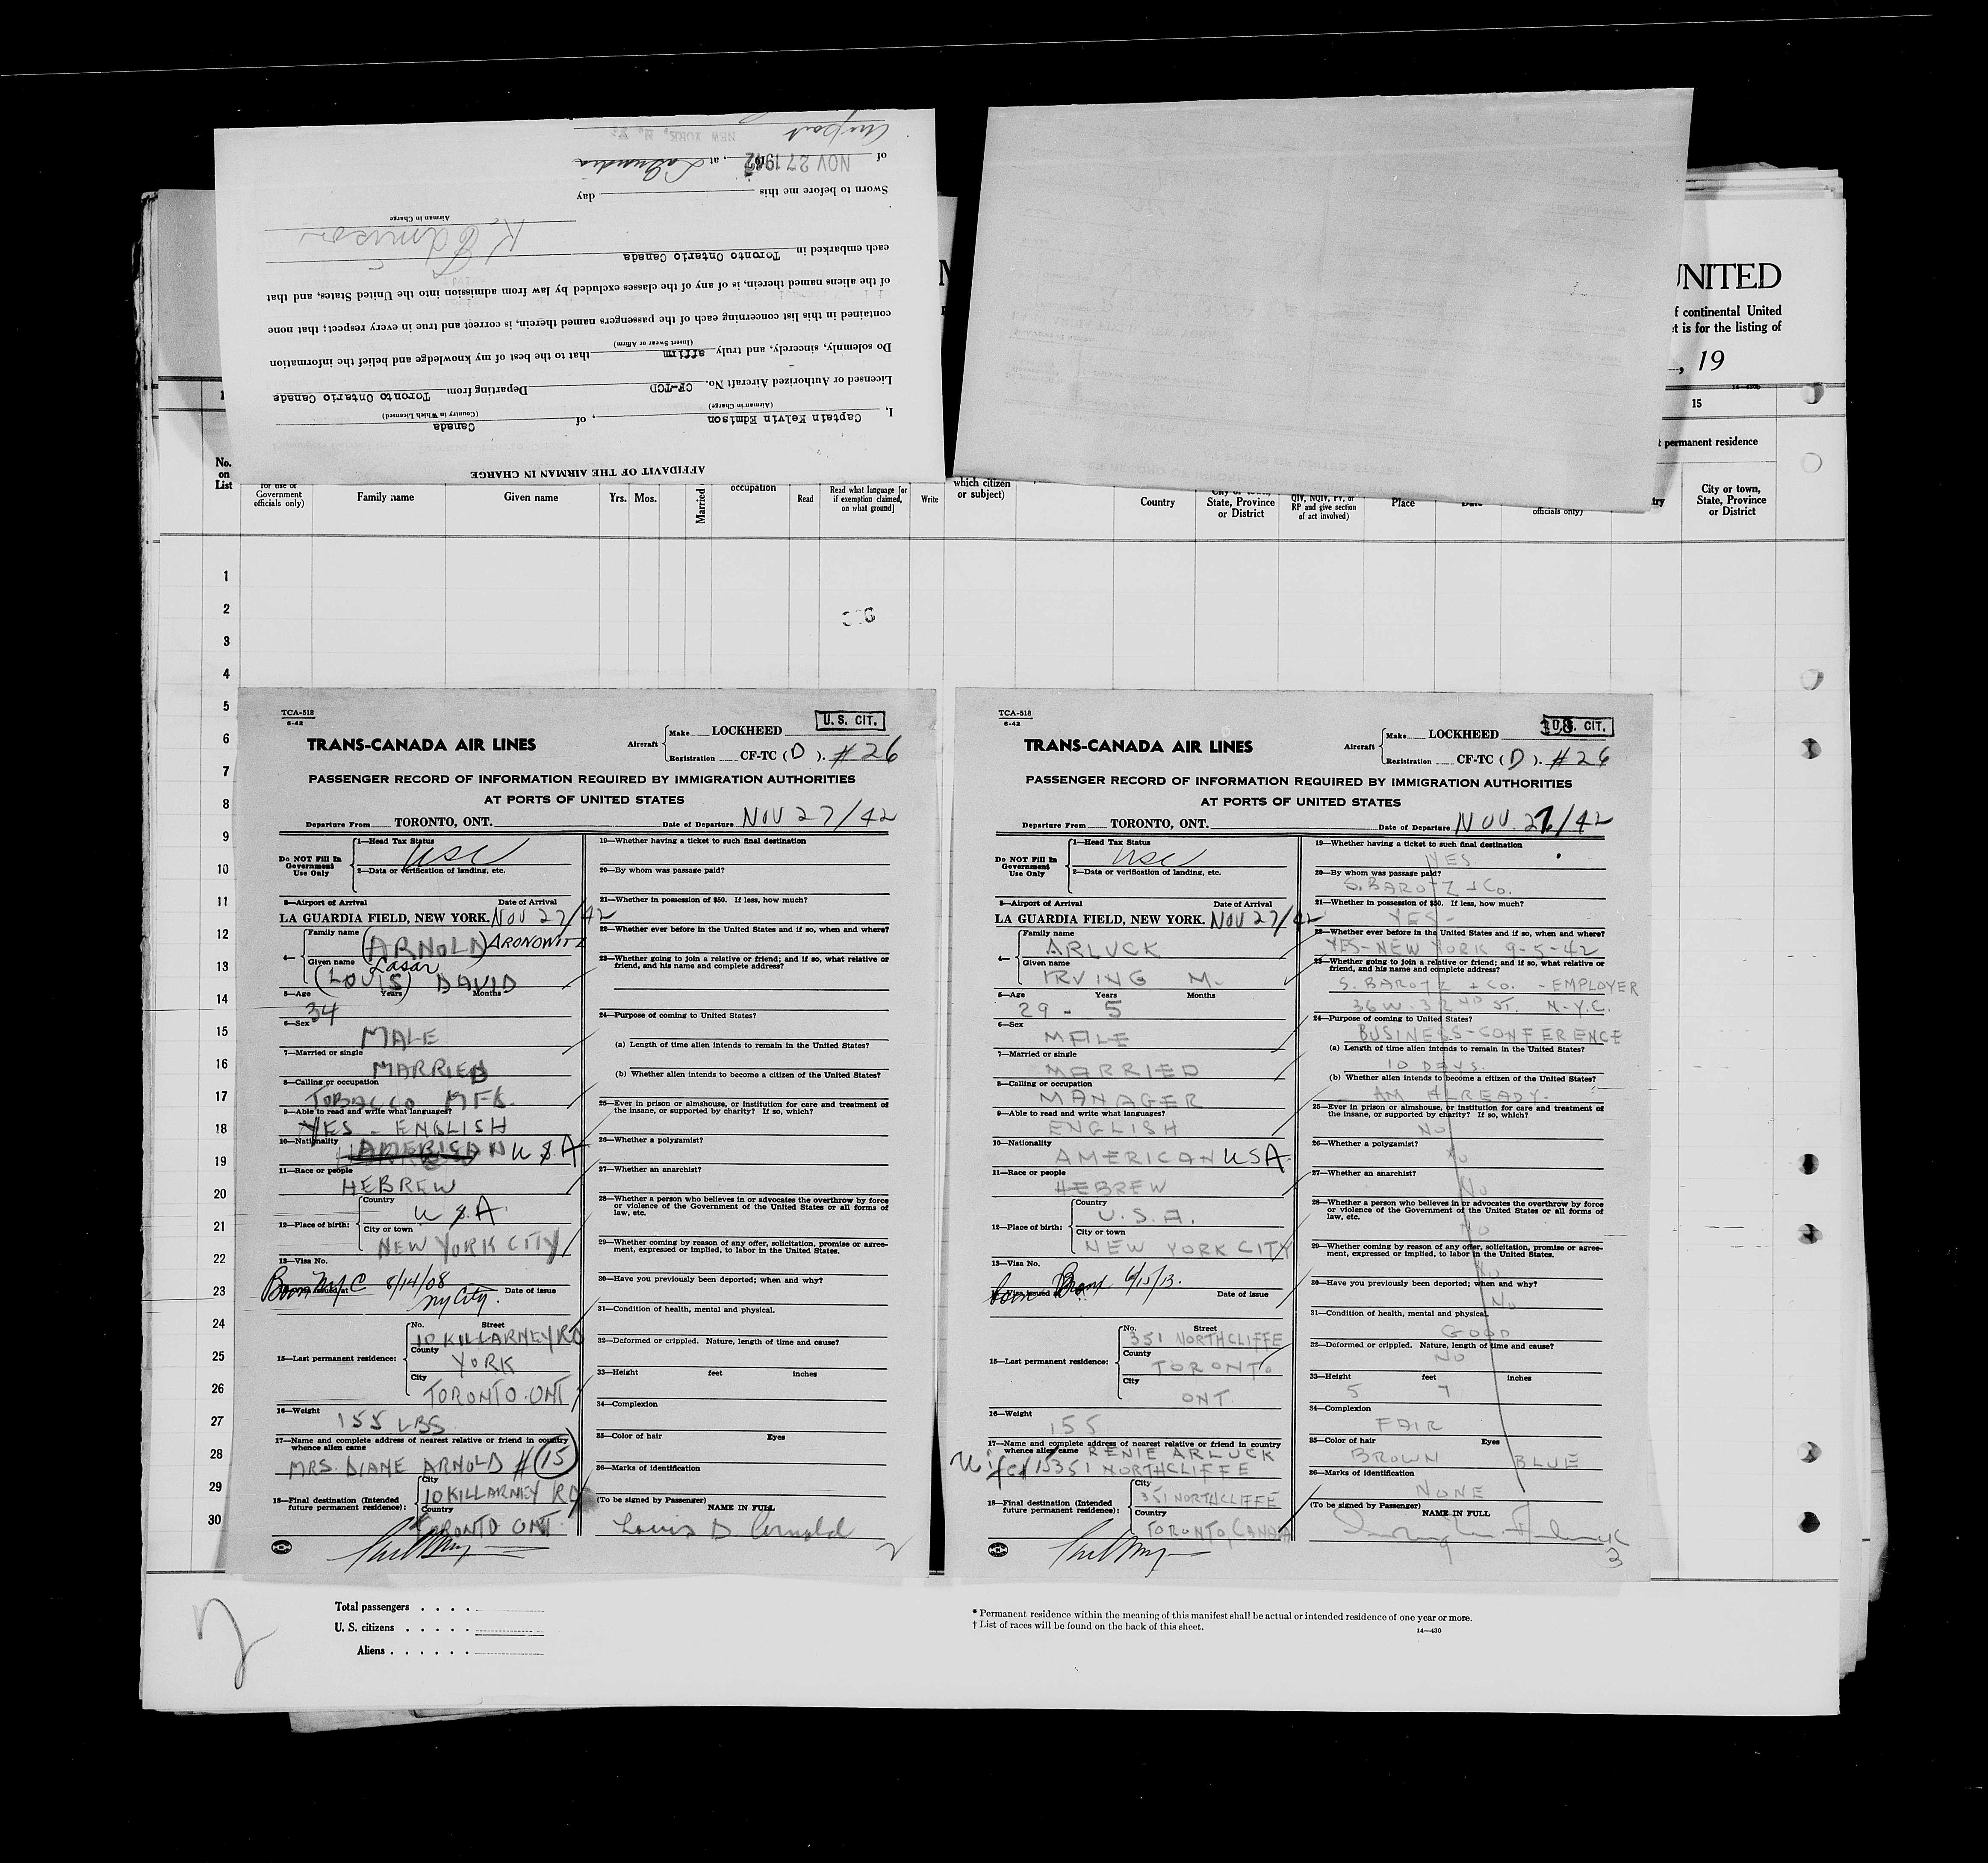 Airport NEW YORK, N. Y.
of NOV 27 1942, at LaGuardia
Sworn to before me this day
Airman in Charge
K. Edmison
each embarked in Toronto Ontario Canada
of the aliens named therein, is of any of the classes excluded by law from admission into the United States, and that
contained in this list concerning each of the passengers named therein, is correct and true in every respect; that none
(Insert Swear or Affirm)
Do solemnly, sincerely, and truly affirm that to the best of my knowledge and belief the information
Licensed or Authorized Aircraft No. CF-TCD Departing from Toronto Ontario Canada
(Airman in Charge) (Country in Which Licensed)
I, Captain Kelvin Edmison, of Canada
AFFIDAVIT OF THE AIRMAN IN CHARGE
UNITED
f continental United
t is for the listing of
, 19
15
t permanent residence
No. on List
for use of Government officials only)
Family name
Given name
Yrs. Mos.
Married
occupation
Read
Read what language [or if exemption claimed, on what ground]
Write
which citizen or subject)
Country
City or town, State, Province or District
QIV, NQIV, PV, or RP and give section of act involved)
Place
Date
officials only)
ry
City or town, State, Province or District
1
2
3
4
5
6
7
8
9
10
11
12
13
14
15
16
17
18
19
20
21
22
23
24
25
26
27
28
29
30
TCA-518
6-42
U. S. CIT.
TRANS-CANADA AIR LINES
Aircraft Make LOCKHEED
Registration CF-TC ( D ). #26
PASSENGER RECORD OF INFORMATION REQUIRED BY IMMIGRATION AUTHORITIES
AT PORTS OF UNITED STATES
Departure From TORONTO, ONT. Date of Departure NOV 27/42
Do NOT Fill In Government Use Only
1—Head Tax Status USC
2—Data or verification of landing, etc.
3—Airport of Arrival Date of Arrival
LA GUARDIA FIELD, NEW YORK. NOV 27/42
4— Family name (ARNOLD) ARONOWITZ
Given name Lasar
(LOUIS) DAVID
5—Age Years Months
34
6—Sex
MALE
7—Married or single
MARRIED
8—Calling or occupation
TOBACCO MFR.
9—Able to read and write what languages?
YES - ENGLISH
10—Nationality AMERICAN USA
11—Race or people
HEBREW
12—Place of birth: Country
U.S.A.
City or town
NEW YORK CITY
13—Visa No.
Born NYC 8/14/08
Visa issued at NY City. Date of issue
15—Last permanent residence: No. Street
10 KILLARNEY RD
County
YORK
City
TORONTO. ONT
16—Weight
155 LBS
17—Name and complete address of nearest relative or friend in country whence alien came
MRS. DIANE ARNOLD # 15
18—Final destination (Intended future permanent residence): City
10 KILLARNEY RD
Country
TORONTO ONT
19—Whether having a ticket to such final destination
20—By whom was passage paid?
21—Whether in possession of $50. If less, how much?
22—Whether ever before in the United States and if so, when and where?
23—Whether going to join a relative or friend; and if so, what relative or friend, and his name and complete address?
24—Purpose of coming to United States?
(a) Length of time alien intends to remain in the United States?
(b) Whether alien intends to become a citizen of the United States?
25—Ever in prison or almshouse, or institution for care and treatment of the insane, or supported by charity? If so, which?
26—Whether a polygamist?
27—Whether an anarchist?
28—Whether a person who believes in or advocates the overthrow by force or violence of the Government of the United States or all forms of law, etc.
29—Whether coming by reason of any offer, solicitation, promise or agreement, expressed or implied, to labor in the United States.
30—Have you previously been deported; when and why?
31—Condition of health, mental and physical.
32—Deformed or crippled. Nature, length of time and cause?
33—Height feet inches
34—Complexion
35—Color of hair Eyes
36—Marks of identification
(To be signed by Passenger) NAME IN FULL
Louis D Arnold
2
TCA-518
6-42
308 U. S. CIT.
TRANS-CANADA AIR LINES
Aircraft Make LOCKHEED
Registration CF-TC ( D ). #26
PASSENGER RECORD OF INFORMATION REQUIRED BY IMMIGRATION AUTHORITIES
AT PORTS OF UNITED STATES
Departure From TORONTO, ONT. Date of Departure NOV. 27/42
Do NOT Fill In Government Use Only
1—Head Tax Status USC
2—Data or verification of landing, etc.
3—Airport of Arrival Date of Arrival
LA GUARDIA FIELD, NEW YORK. NOV 27/42
4— Family name
ARLUCK
Given name
IRVING M.
5—Age Years Months
29 - 5
6—Sex
MALE
7—Married or single
MARRIED
8—Calling or occupation
MANAGER
9—Able to read and write what languages?
ENGLISH
10—Nationality
AMERICAN USA
11—Race or people
HEBREW
12—Place of birth: Country
U.S.A.
City or town
NEW YORK CITY
13—Visa No.
born Bronx 6/15/13.
Visa issued Date of issue
15—Last permanent residence: No. Street
351 NORTHCLIFFE
County
TORONTO
City
ONT
16—Weight
155
17—Name and complete address of nearest relative or friend in country whence alien came RENIE ARLUCK
Wife 15 351 NORTHCLIFFE
18—Final destination (Intended future permanent residence): City
351 NORTHCLIFFE
Country
TORONTO, CANADA
19—Whether having a ticket to such final destination
YES
20—By whom was passage paid?
S. BAROTZ + Co.
21—Whether in possession of $50. If less, how much?
YES-
22—Whether ever before in the United States and if so, when and where?
YES-NEW YORK 9-5-42
23—Whether going to join a relative or friend; and if so, what relative or friend, and his name and complete address?
S. BAROTZ + Co. - EMPLOYER
36 W. 32ND ST. N.Y.C.
24—Purpose of coming to United States?
BUSINESS-CONFERENCE
(a) Length of time alien intends to remain in the United States?
10 DAYS.
(b) Whether alien intends to become a citizen of the United States?
AM ALREADY-
25—Ever in prison or almshouse, or institution for care and treatment of the insane, or supported by charity? If so, which?
No
26—Whether a polygamist?
No
27—Whether an anarchist?
No
28—Whether a person who believes in or advocates the overthrow by force or violence of the Government of the United States or all forms of law, etc.
No
29—Whether coming by reason of any offer, solicitation, promise or agreement, expressed or implied, to labor in the United States.
No
30—Have you previously been deported; when and why?
No
31—Condition of health, mental and physical.
GOOD
32—Deformed or crippled. Nature, length of time and cause?
NO
33—Height feet inches
5 7
34—Complexion
FAIR
35—Color of hair Eyes
BROWN BLUE
36—Marks of identification
NONE
(To be signed by Passenger) NAME IN FULL
3
2
Total passengers . . . .
U. S. citizens . . . . .
Aliens . . . . . .
* Permanent residence within the meaning of this manifest shall be actual or intended residence of one year or more.
† List of races will be found on the back of this sheet.
14—430